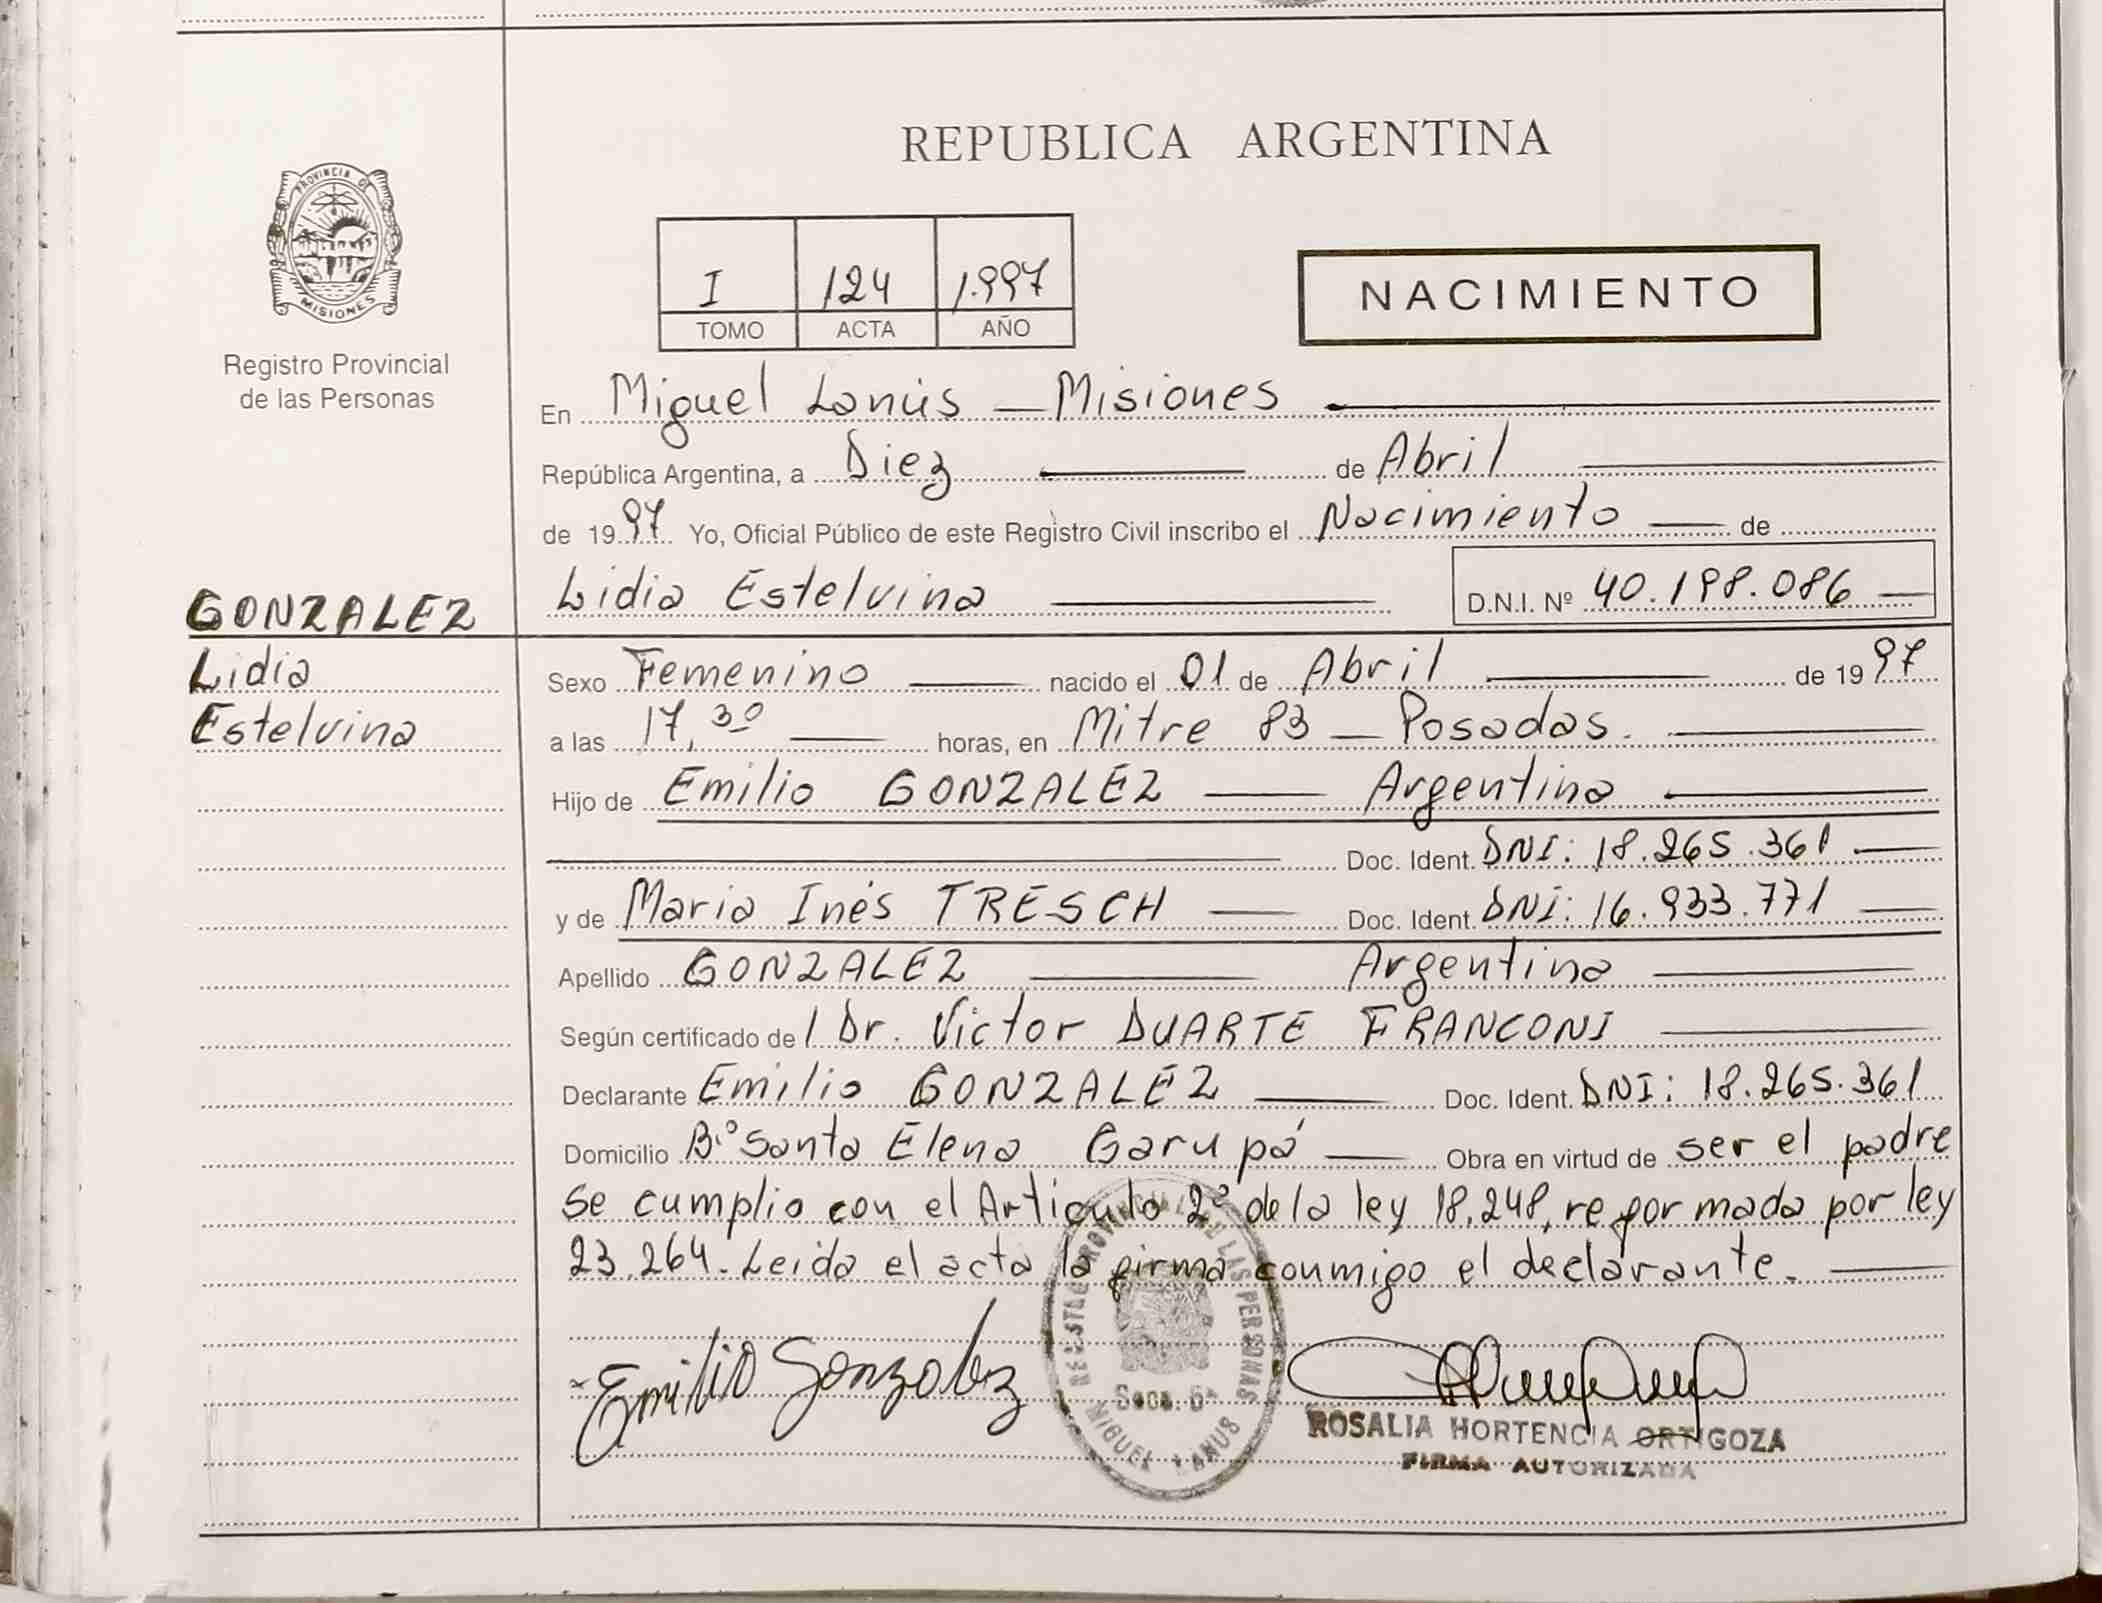 REPUBLICA ARGENTINA
PROVINCIA DE
MISIONES
Registro Provincial
de las Personas
I 124 1.997
TOMO ACTA AÑO
NACIMIENTO
En Miguel Lanús — Misiones
República Argentina, a Diez de Abril
de 1997 Yo, Oficial Público de este Registro Civil inscribo el Nacimiento de
Lidia Estelvina D.N.I. Nº 40.198.086
GONZALEZ
Lidia
Estelvina
Sexo Femenino nacido el 01 de Abril de 1997
a las 17,30 horas, en Mitre 83 — Posadas.
Hijo de Emilio GONZALEZ Argentina
Doc. Ident. DNI: 18.265.361
y de Maria Inés TRESCH Doc. Ident. DNI: 16.933.771
Apellido GONZALEZ Argentina
Según certificado de l Dr. Victor DUARTE FRANCONI
Declarante Emilio GONZALEZ Doc. Ident. DNI: 18.265.361
Domicilio Bº Santa Elena Garupá Obra en virtud de ser el padre
se cumplio con el Articulo 2º de la ley 18.248, reformada por ley
23.264. Leida el acta la firma conmigo el declarante.
Emilio Gonzalez
REGISTRO PROVINCIAL DE LAS PERSONAS
MIGUEL LANUS
ROSALIA HORTENCIA ORTIGOZA
FIRMA AUTORIZADA